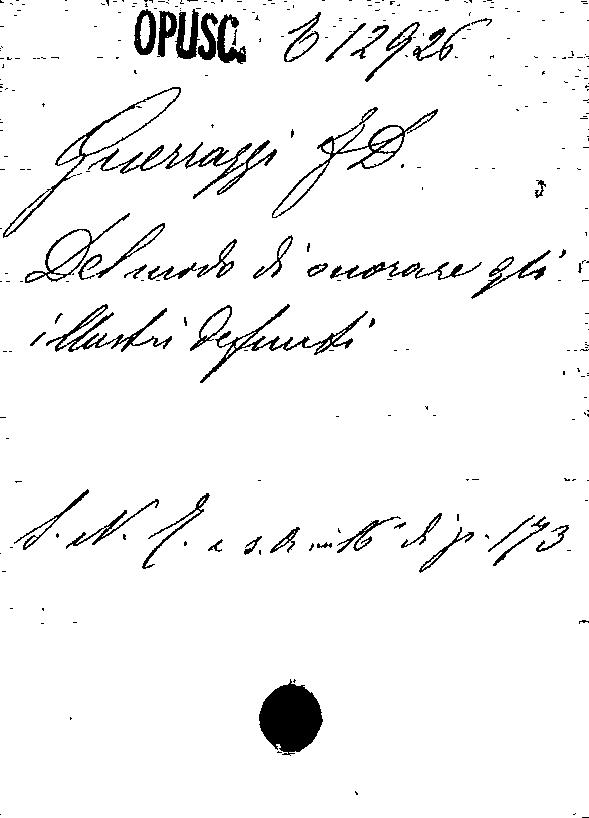 OPUSC. E 12926
Guerrazzi F D.
Del modo di onorare gli
illustri defunti
S. N. T. e s. d. in 16° di p. 173